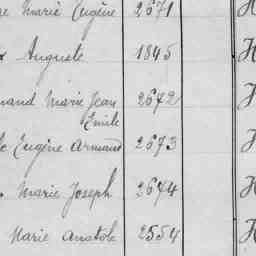 Marie Eugène 2671 H
Auguste 1845 H
Marie Jean 2672 H
Emile
Eugène Armand 2673 H
Marie Joseph 2674 H
Marie Anatole 2554 H